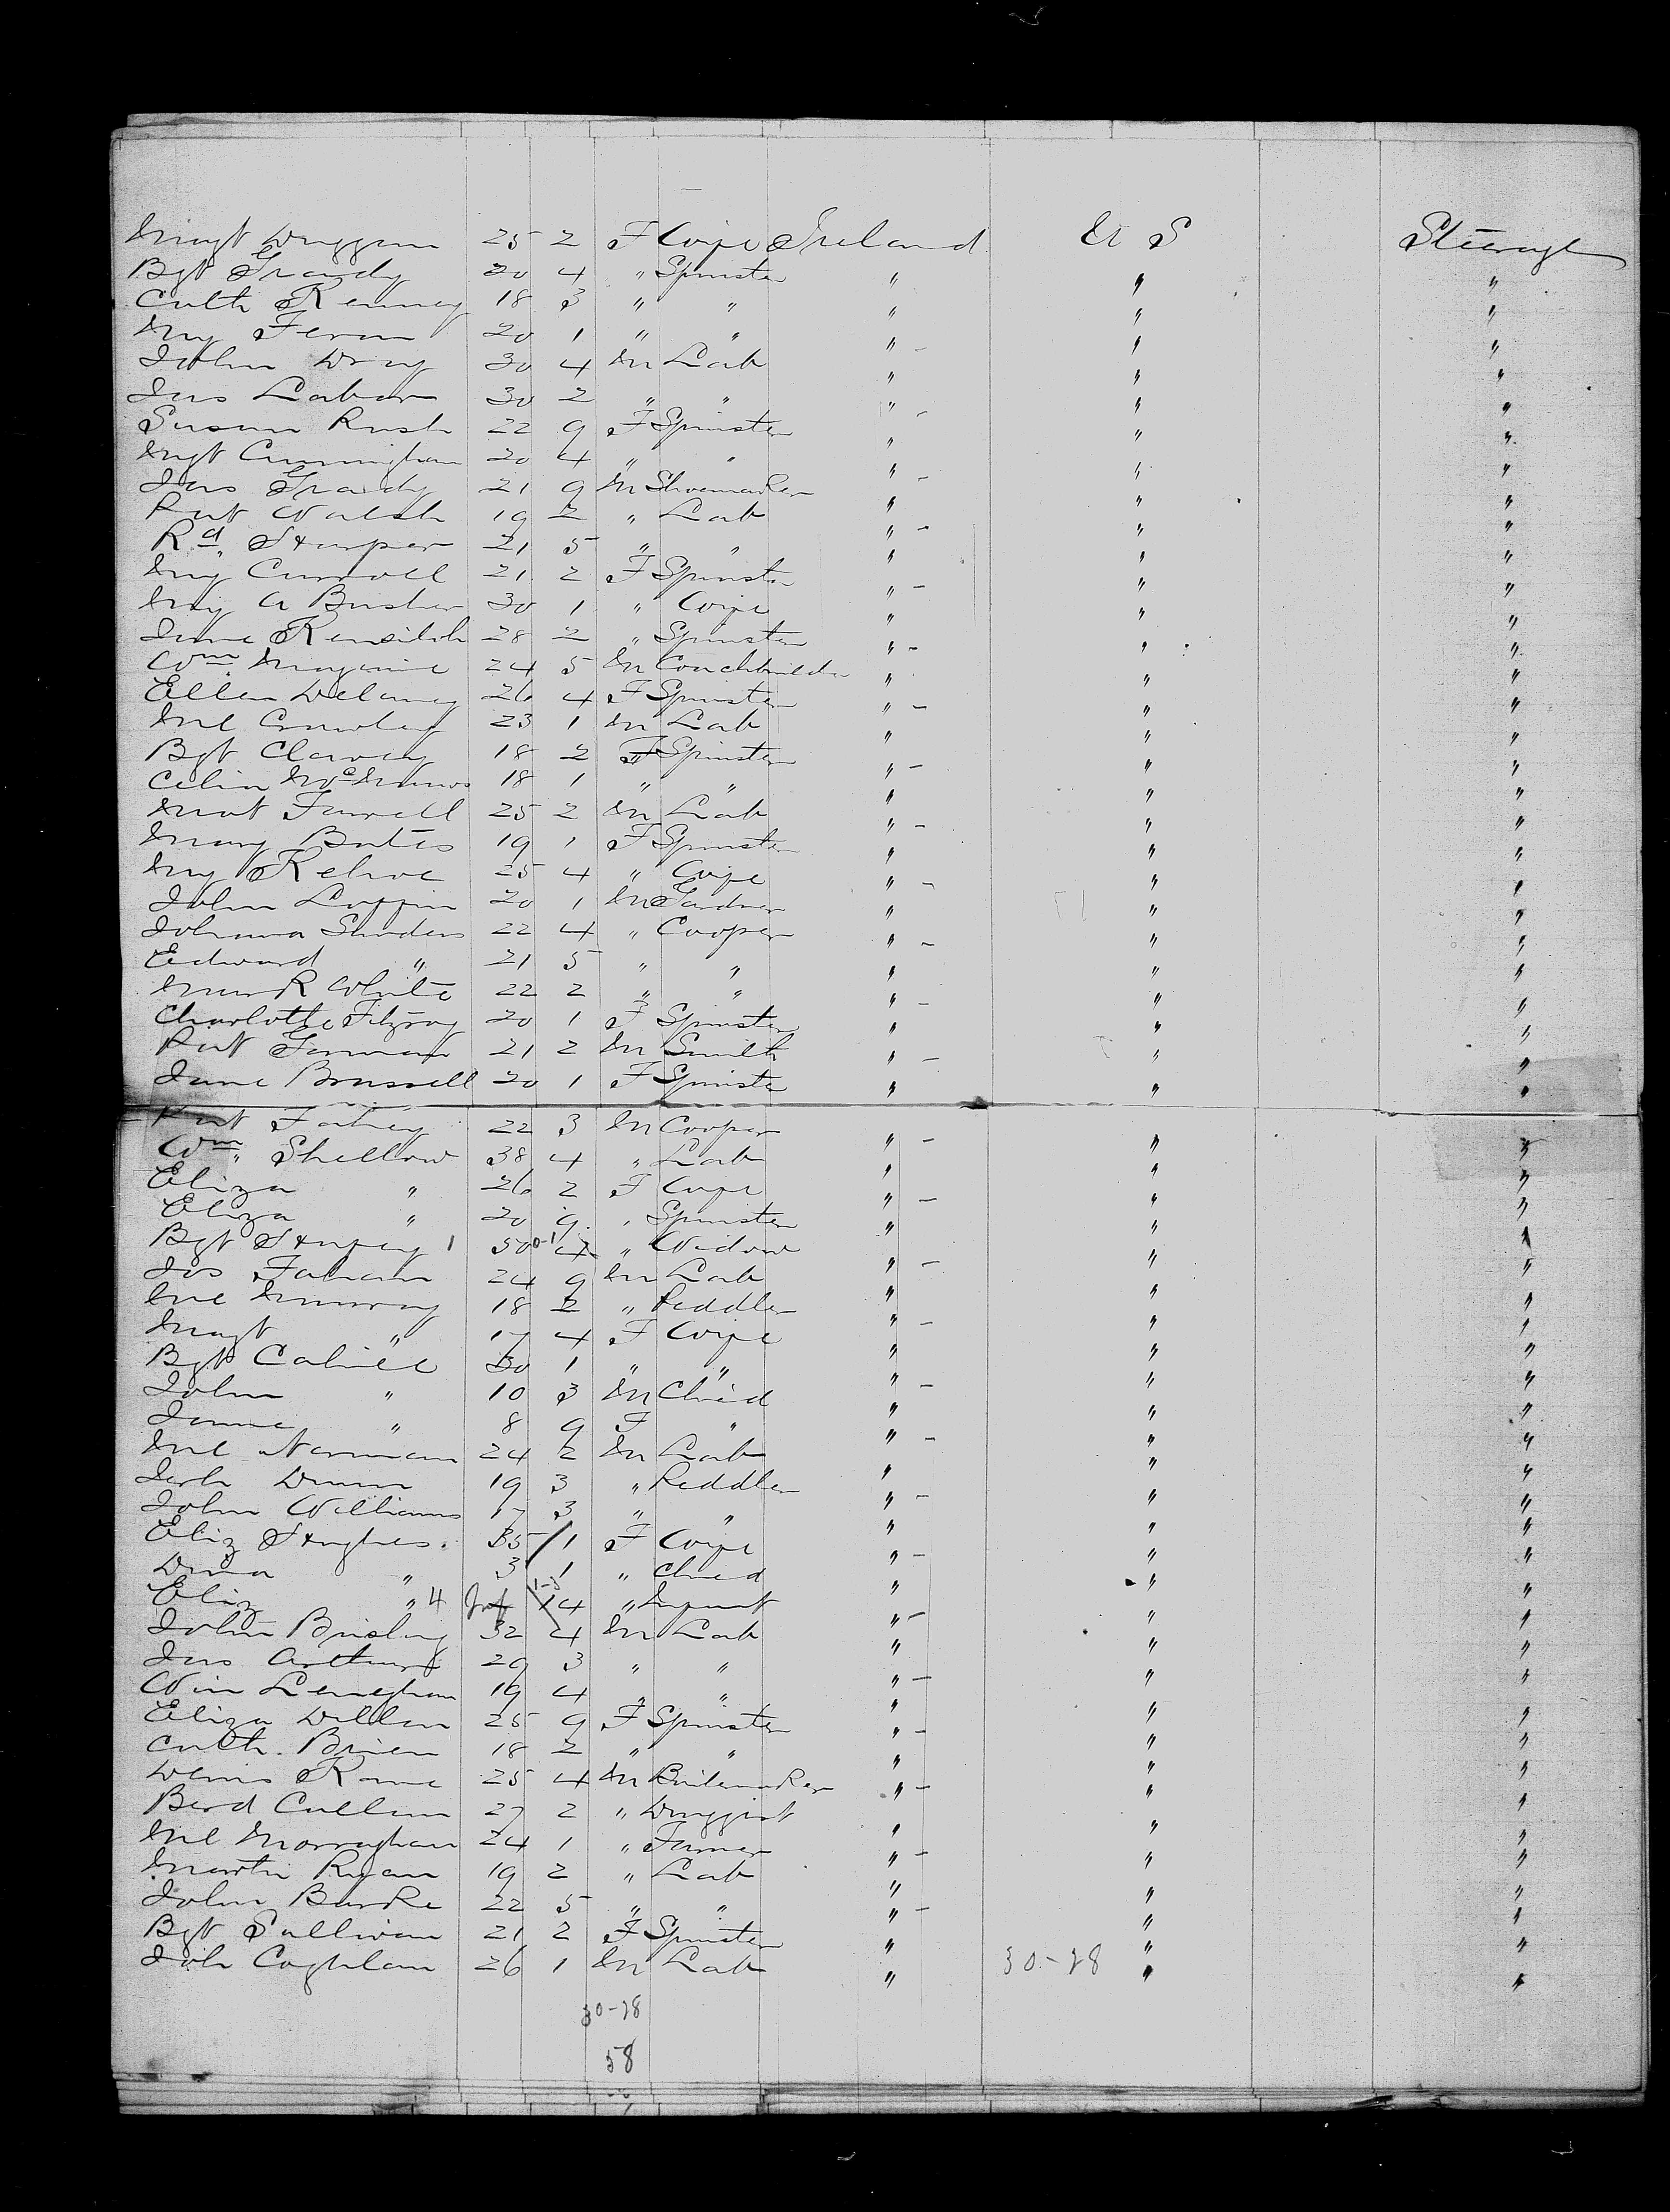 Margt Duggan 25 2 F Wife Ireland U S Steerage
Bgt Grady 20 4 " Spinster " " "
Cath Kenney 18 3 " " " " "
My Feron 20 1 " " " " "
John Dray 30 4 M Lab " " "
Jas Labor 30 2 " " " " "
Susan Rush 22 9 F Spinster " " "
Mgt Cunningham 20 4 " " " " "
Jas Grady 21 9 M Shoemaker " " "
Pat Walsh 19 2 " Lab " " "
Rd Harper 21 5 " " " " "
My Carroll 21 2 F Spinster " " "
My A Busher 30 1 " Wife " " "
Jane 28 2 " Spinster " " "
Wm Maguire 24 5 M Coachbuilder " " "
Ellen Delaney 26 4 F Spinster " " "
Ml Crowley 23 1 M Lab " " "
Bgt Clancy 18 2 F Spinster " " "
Celia McManus 18 1 " " " " "
Mat Farrell 25 2 M Lab " " "
Mary Bates 19 1 F Spinster " " "
My Kehoe 25 4 " Wife " " "
John Loppin 20 1 M Gardner " " "
Johanna Sanders 22 4 " Cooper " " "
Edward " 21 5 " " " " "
Mark White 22 2 " " " " "
Charlotte Fitzroy 20 1 F Spinster " " "
Pat Gorman 21 2 M Smith " " "
Jane Brassell 20 1 F Spinster " " "
Pat Fahey 22 3 M Cooper " " "
Wm Shellow 38 4 " Lab " " "
Eliza " 26 2 F Wife " " "
Eliza " 20 9 " Spinster " " "
Bgt 1 50 0-1 4 " Widow " " "
Jos Fahan 24 9 M Lab " " "
Ml Murray 18 2 " Peddler " " "
Magt " 17 4 F Wife " " "
Bgt Cahill 30 1 " " " " "
John " 10 3 M Child " " "
Jane " 8 9 F " " " "
Ml Noonan 24 2 M Lab " " "
Jerh Dunn 19 3 " Peddler " " "
John Williams 17 3 " " " " "
Eliz Hughes 35 1 F Wife " " "
Dina " 3 1 " Child " " "
Eliz " 4 Inf 1-3 14 " Infant " " "
John Brisling 32 4 M Lab " " "
Jas Arthurs 29 3 " " " " "
Win Leneghan 19 4 " " " " "
Eliza Dillon 25 9 F Spinster " " "
Cath. Brien 18 2 " " " " "
Denis Kane 25 4 M Boilemaker " " "
Berd Cullen 27 2 " Druggist " " "
Ml Monaghan 24 1 " Farmer " " "
Martin Ryan 19 2 " Lab " " "
John Burke 22 5 " " " " "
Bgt Sullivan 21 2 F Spinster " " "
Joh Coghlan 26 1 M Lab " 30-28 " "
30-28
58